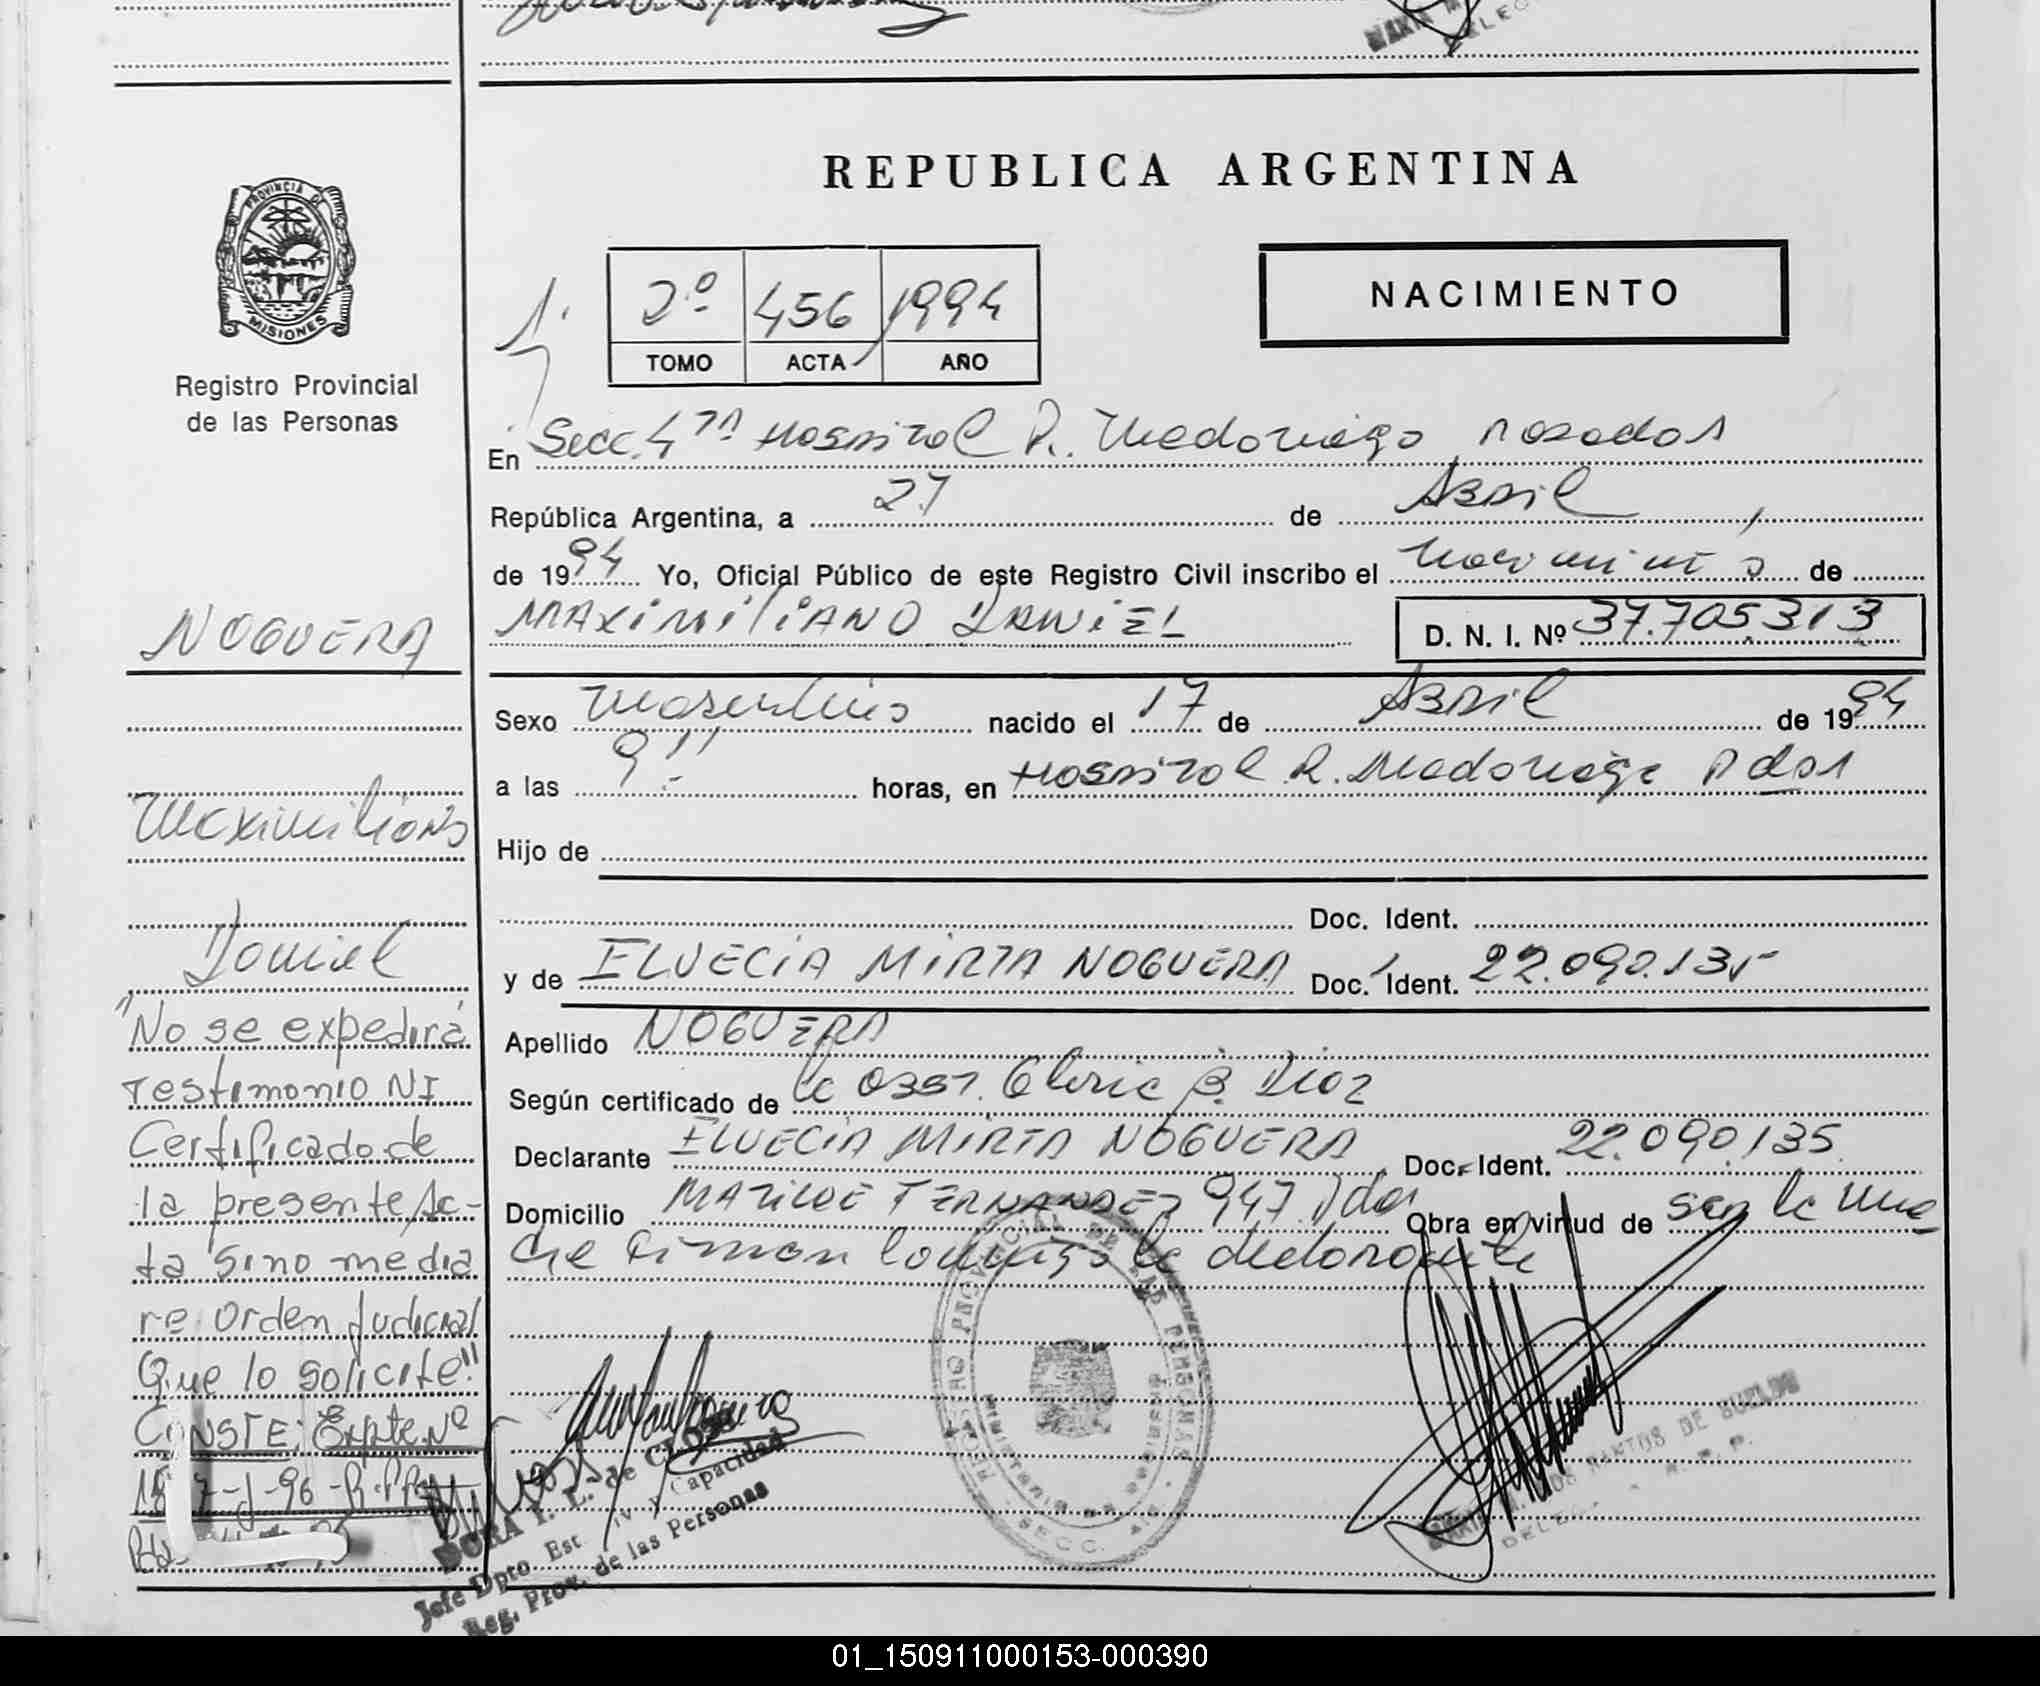 REPUBLICA ARGENTINA
PROVINCIA DE
MISIONES
Registro Provincial
de las Personas
NACIMIENTO
2º 456 1994
TOMO ACTA AÑO
En Secc. 4ta Hospital R. Madariaga Posadas
República Argentina, a 27 de Abril
de 1994 Yo, Oficial Público de este Registro Civil inscribo el nacimiento de
MAXIMILIANO DANIEL D. N. I. Nº 37.705.313
Sexo Masculino nacido el 17 de Abril de 1994
a las 9 horas, en Hospital R. Madariaga Pdas
Hijo de
Doc. Ident.
y de ELVECIA MIRTA NOGUERA Doc. Ident. 22.090.135
Apellido NOGUERA
Según certificado de la Obst. B. Diaz
Declarante ELVECIA MIRTA NOGUERA Doc. Ident. 22.090.135
Domicilio MATILDE FERNANDEZ 947 Pdas Obra en virtud de ser la ma-
dre Firman conmigo la declarante
NOGUERA
Maximiliano
Daniel
"No se expedirá
Testimonio NI
Certificado de
la presente Ac-
ta sino media
re orden Judicial
Que lo solicite"
CONSTE: Expte. Nº
-J-96-R.P.P.
DORA T. L. de CLOSS
Jefe Dpto. Est. Civ. y Capacidad
Reg. Prov. de las Personas
REGISTRO PROVINCIAL DE LAS PERSONAS
SECC. 4ta.
SANTOS DE
01_150911000153-000390